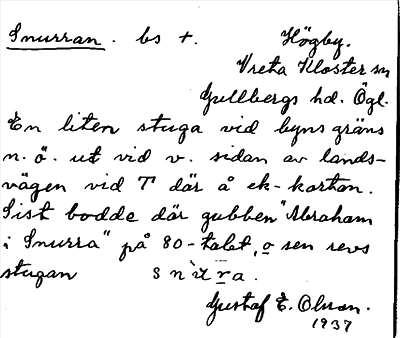 Snurran. bs +. Högby.
Vreta Kloster sn
Gullbergs hd. Ögl.
En liten stuga vid byns gräns
n. ö. ut vid v. sidan av lands-
vägen vid T där å ek-kartan.
Sist bodde där gubben "Abraham
i Snurra" på 80-talet, o sen revs
stugan snùra.
Gustaf E. Olsson.
1937